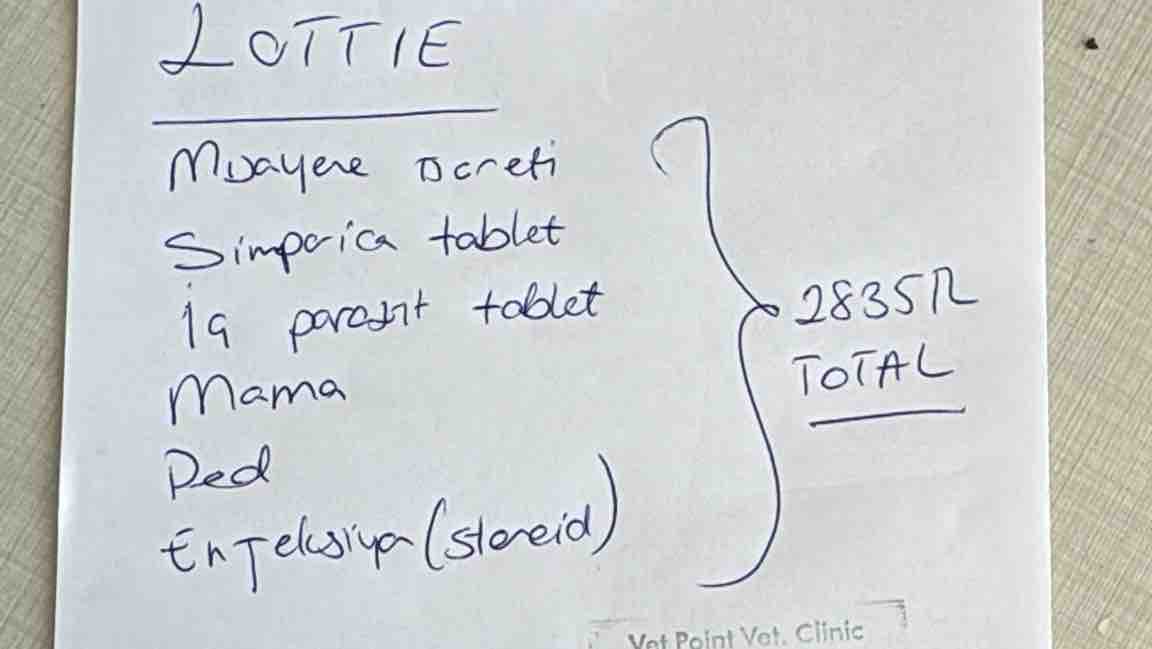 LOTTIE
Muayene ücreti
Simparica tablet
İç parazit tablet
Mama
Ped
Enjeksiyon (steroid)
2835 TL
TOTAL
Vet Point Vet. Clinic